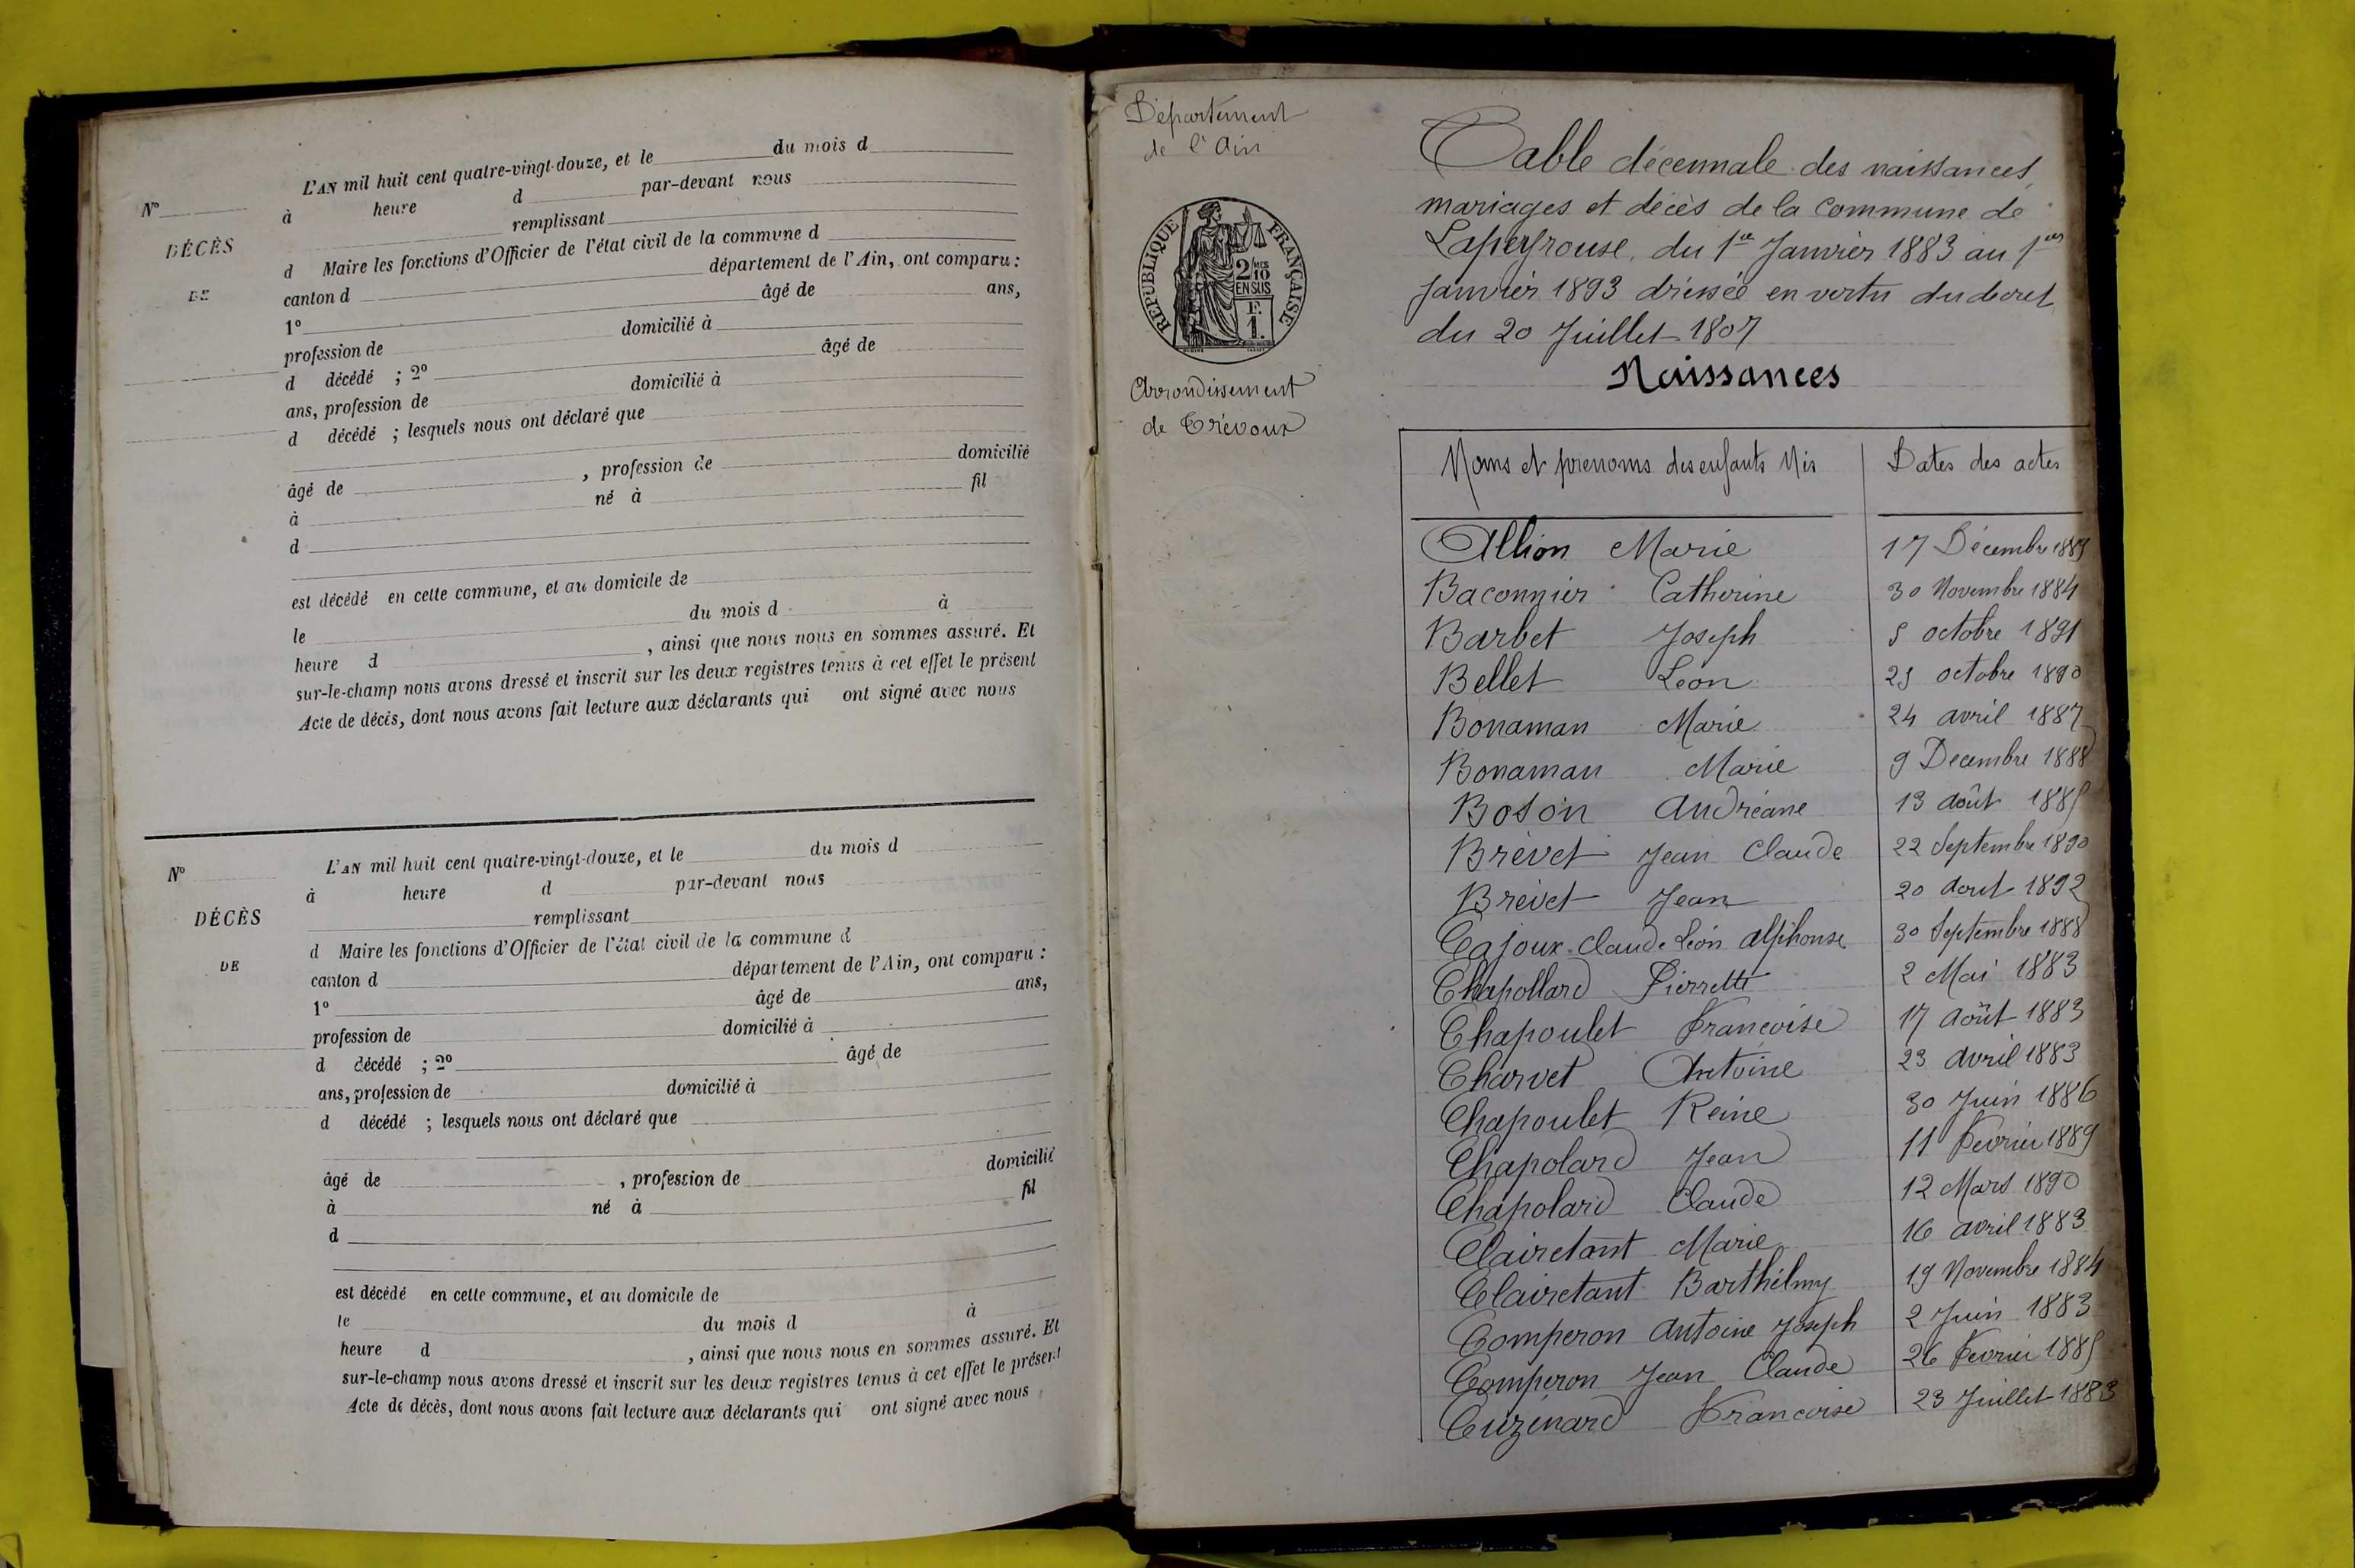 L'AN mil huit cent quatre-vingt-douze, et le du mois d
à heure d par-devant nous
remplissant
d Maire les fonctions d'Officier de l'état civil de la commune d
canton d département de l'Ain, ont comparu :
1º âgé de ans,
profession de domicilié à
d décédé ; 2º âgé de
ans, profession de domicilié à
d décédé ; lesquels nous ont déclaré que
âgé de , profession de domicilié
à né à fil
d
est décédé en cette commune, et au domicile de
le du mois d à
heure d , ainsi que nous nous en sommes assuré. Et
sur-le-champ nous avons dressé et inscrit sur les deux registres tenus à cet effet le présent
Acte de décès, dont nous avons fait lecture aux déclarants qui ont signé avec nous
Nº
DÉCÈS
DE
L'AN mil huit cent quatre-vingt-douze, et le du mois d
à heure d par-devant nous
remplissant
d Maire les fonctions d'Officier de l'état civil de la commune d
canton d département de l'Ain, ont comparu :
1º âgé de ans,
profession de domicilié à
d décédé ; 2º âgé de
ans, profession de domicilié à
d décédé ; lesquels nous ont déclaré que
âgé de , profession de domicilié
à né à fil
d
est décédé en cette commune, et au domicile de
le du mois d à
heure d , ainsi que nous nous en sommes assuré. Et
sur-le-champ nous avons dressé et inscrit sur les deux registres tenus à cet effet le présent
Acte de décès, dont nous avons fait lecture aux déclarants qui ont signé avec nous
Nº
DÉCÈS
DE
Département
de l'Ain
RÉPUBLIQUE FRANÇAISE
2/10 MES
EN SUS
F.
1.
Arrondissement
de Trévoux
Table décennale des naissances,
mariages et décès de la commune de
Lapeyrouse, du 1er Janvier 1883 au 1er
Janvier 1893 dressée en vertu du decret
du 20 Juillet 1807
Naissances
Noms et prenoms des enfants Nés Dates des actes
Allion Marie 17 Décembre 1885
Baconnier Catherine 30 Novembre 1884
Barbet Joseph 5 octobre 1891
Bellet Léon 25 octobre 1890
Bonaman Marie 24 avril 1887
Bonaman Marie 9 Decembre 1888
Boson Andréane 13 août 1885
Brevet Jean Claude 22 Septembre 1890
Brevet Jean 20 Aout 1892
Cajoux Claude Léon Alphonse 30 Septembre 1888
Chapollard Pierrette 2 Mai 1883
Chapoulet Francoise 17 Août 1883
Charvet Antoine 23 Avril 1883
Chapoulet Reine 30 Juin 1886
Chapolard Jean 11 Fevrier 1889
Chapolard Claude 12 Mars 1890
Clairetant Marie 16 avril 1883
Clairetant Barthélmy 19 Novembre 1884
Comperon Antoine Joseph 2 Juin 1883
Comperon Jean Claude 26 Fevrier 1885
Cuzenard Francoise 23 Juillet 1883